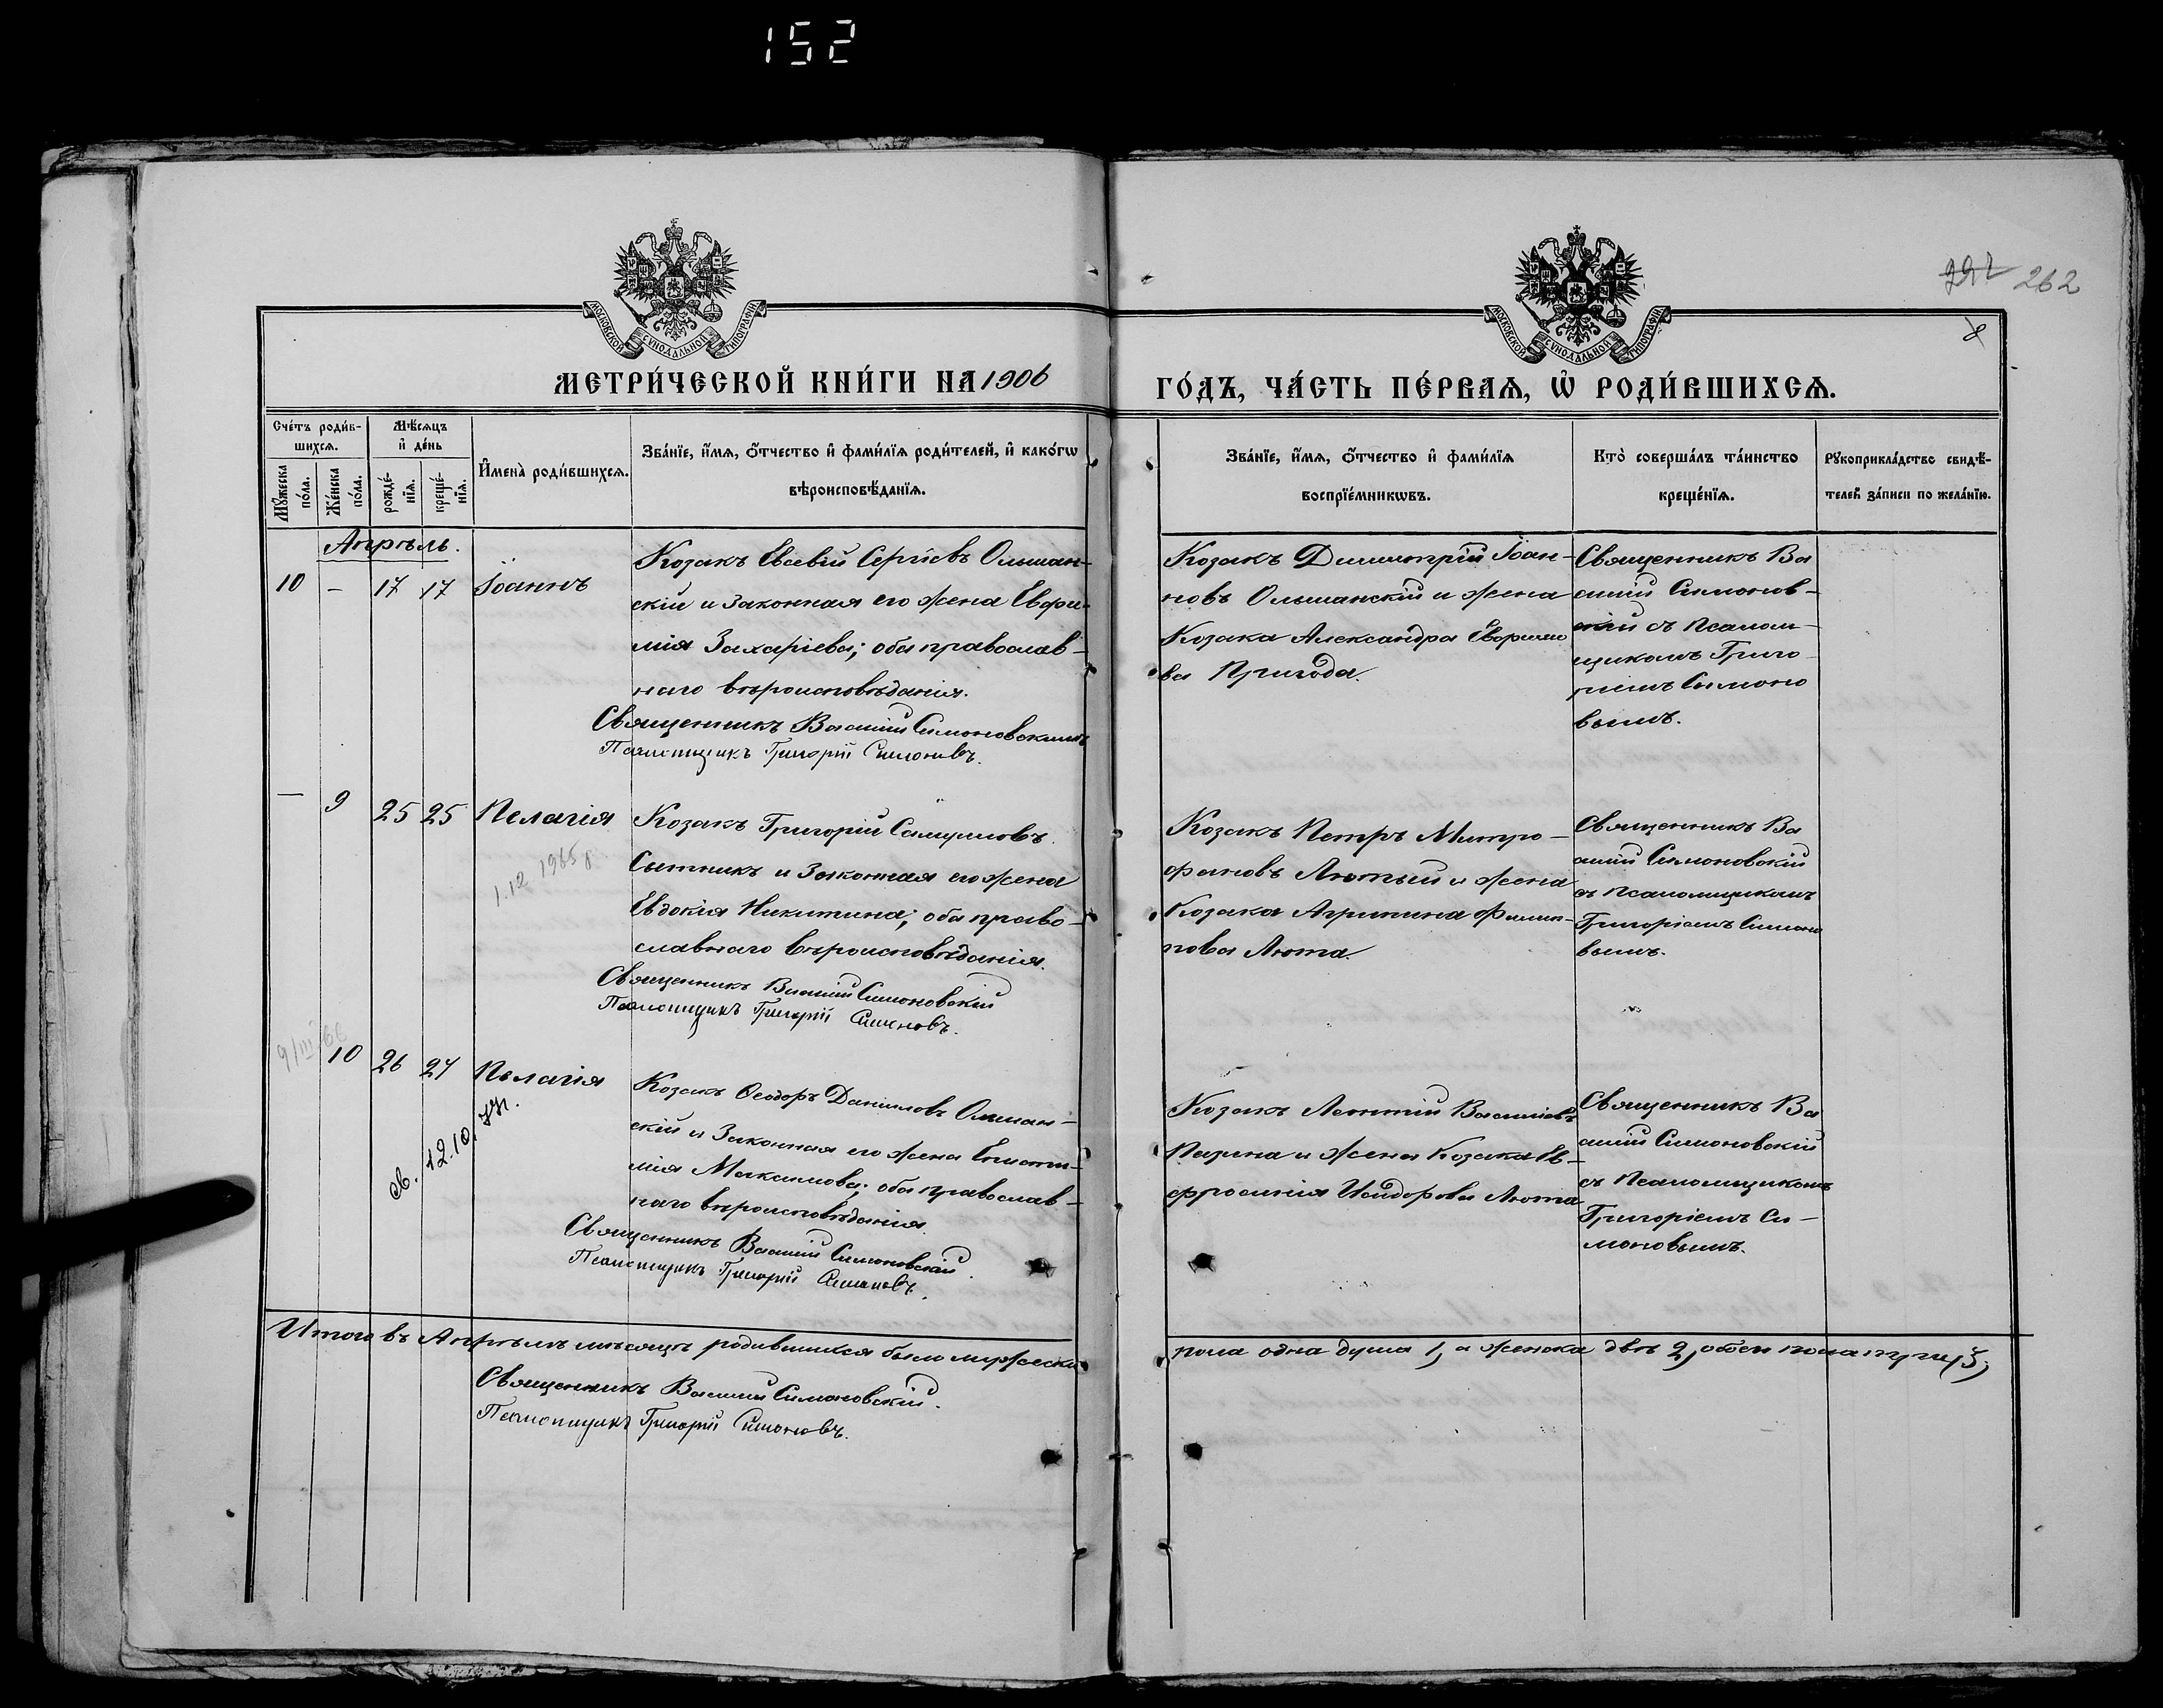 152
262
МОСКОВСКОЙ СѴНОДАЛЬНОЙ ТИПОГРАФІИ
МОСКОВСКОЙ СѴНОДАЛЬНОЙ ТИПОГРАФІИ
МЕТРИ́ЧЕСКОЙ КНИ́ГИ НА 1906
ГО́ДЪ, ЧА́СТЬ ПЕ́РВАѦ, Ѡ҆ РОДИ́ВШИХСѦ.
Сче́тъ роди́в-
шихсѧ.
Мѣ́сѧцъ
и҆ де́нь
Мꙋ́жеска
по́ла.
Же́нска
по́ла.
рожде́-
нїѧ.
креще́-
нїѧ.
И҆мена̀ роди́вшихсѧ.
Зва́нїе, и҆́мѧ, ѻ҆́тчество и҆ фами́лїѧ роди́телей, и҆ како́гѡ
вѣроисповѣ́данїѧ.
Зва́нїе, и҆́мѧ, ѻ҆́тчество и҆ фами́лїѧ
воспрїе́мникѡвъ.
Кто̀ соверша́лъ та́инство
креще́нїѧ.
Рꙋкоприкла́дство свидѣ́-
телей за́писи по жела́нїю.
Апрѣль.
10 – 17 17 Іоаннъ
Козакъ Евсевій Сергіевъ Ольшан-
скій и законная его жена Евфи-
мія Захаріева; оба православ-
наго вѣроисповѣданія.
Священникъ Василій Симоновскій
Псаломщикъ Григорій Симоновъ.
Козакъ Димитрій Іоан-
новъ Ольшанскій и жена
Козака Александра Евфимо
ва Пригода.
Священникъ Ва
силій Симонов-
скій съ псалом-
щикомъ Григо-
ріемъ Симоно
вымъ.
— 9 25 25 Пелагія
1.12 1965
Козакъ Григорій Самуиловъ
Сытникъ и законная его жена
Евдокія Никитина; оба право-
славнаго вѣроисповѣданія.
Священникъ Василій Симоновскій
Псаломщикъ Григорій Симоновъ.
Козакъ Петръ Митро-
фановъ Лютый и жена
Козака Агрипина Филип-
пова Люта.
Священникъ Ва
силій Симоновскій
съ псаломщикомъ
Григоріемъ Симоно
вымъ.
9/III 66
10 26 27 Пелагія
св. 12.10.77.
Козакъ Ѳеодоръ Даніиловъ Ольшан-
скій и законная его жена Еписти-
мія Максимова; оба православ-
наго вѣроисповѣданія.
Священникъ Василій Симоновскій.
Псаломщикъ Григорій Симоновъ.
Козакъ Леонтій Васильевъ
и жена Козака Ев-
фросинія Исидорова Люта
Священникъ Ва
силій Симоновскій
съ псаломщикомъ
Григоріемъ Си-
моновымъ.
Итого въ Апрѣлѣ мѣсяцѣ родившихся было мужеска
пола одна душа 1, а женска двѣ 2, обоего пола три 3;
Священникъ Василій Симоновскій.
Псаломщикъ Григорій Симоновъ.